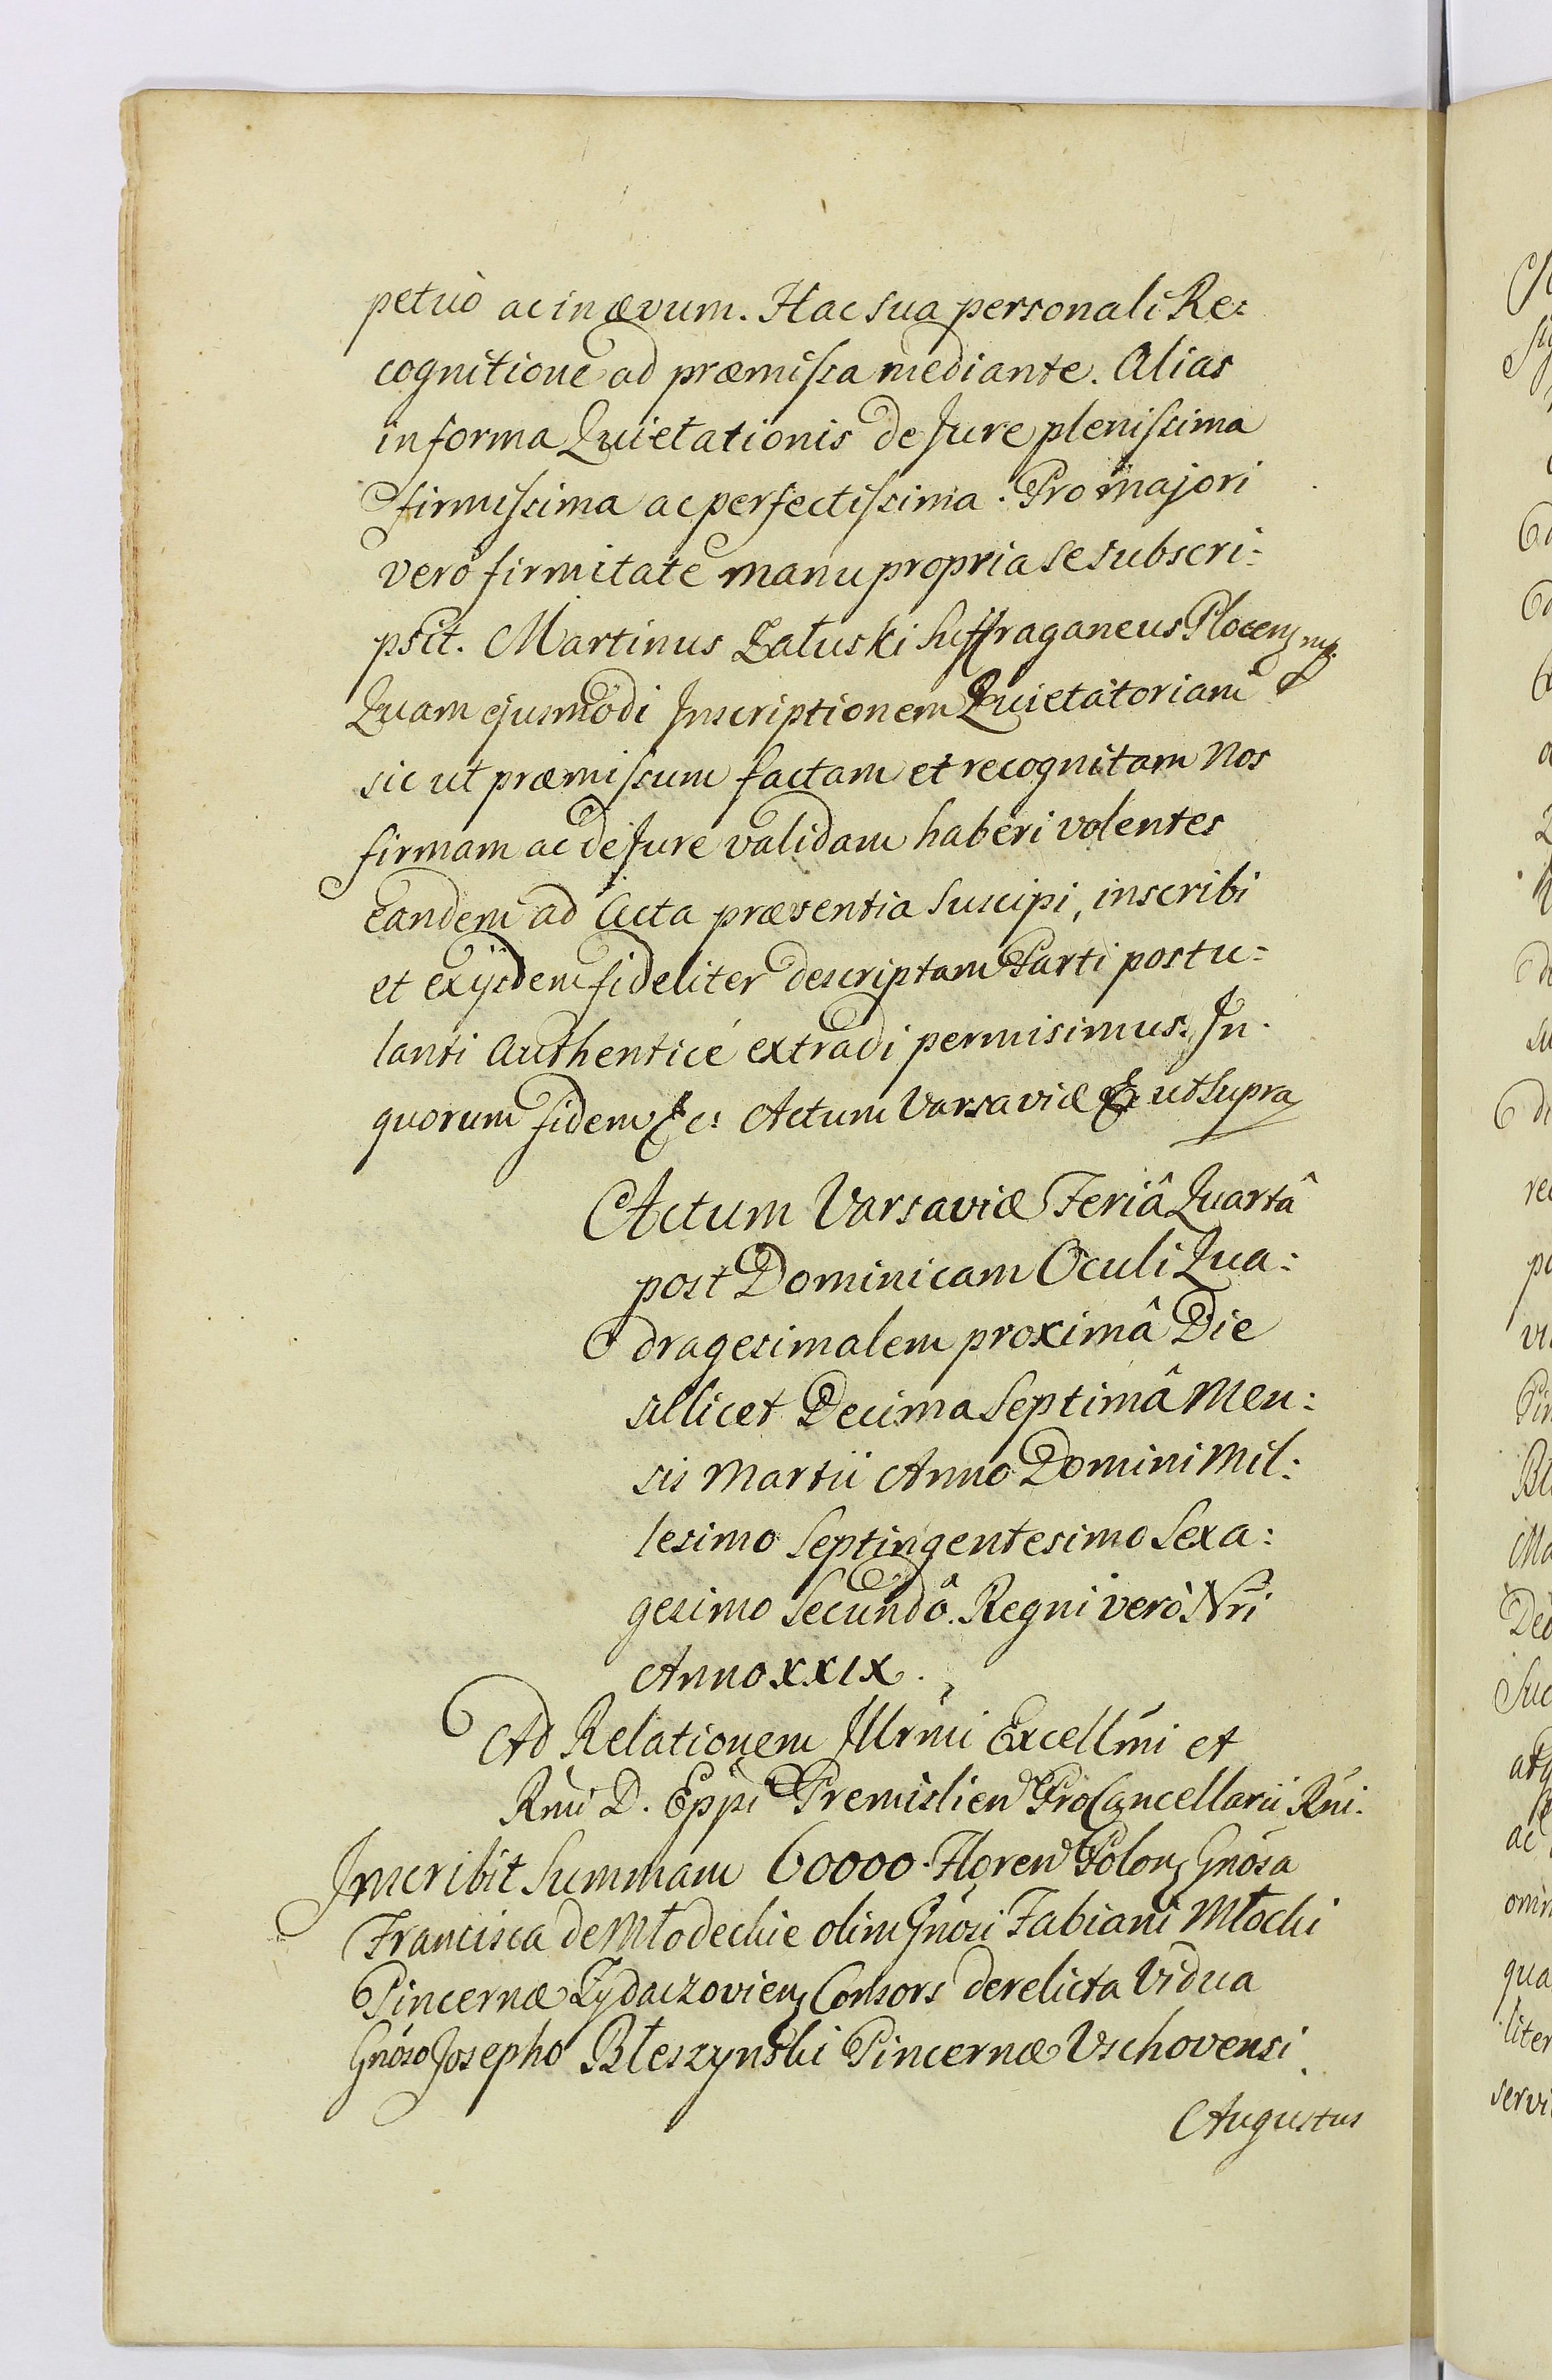 petuò ac in ævum. Hac sua personali Re=
cognitione ad præmissa mediante. Alias
in forma Quietationis de Jure plenissima
firmissima ac perfectissima. Pro majori
verò firmitate manu propria se subscri=
psit. Martinus Załuski Suffraganeus Plocen mp.
Quam ejusmodi Inscriptionem Quietatoriam
sic ut præmissum factam et recognitam Nos
firmam ac de Jure validam haberi volentes
eandem ad Acta præsentia suscipi, inscribi
et exijsdem fideliter descriptam Parti postu=
lanti Authenticé extradi permisimus. In
quorum fidem &c: Actum Varsaviæ & ut supra
Actum Varsaviæ Feriâ Quartâ
post Dominicam Oculi Qua:
dragesimalem proximâ Die
scilicet Decima Septimâ Men:
sis Martii Anno Domini Mil:
lesimo Septingentesimo Sexa:
gesimo Secundô. Regni verò Nri
Anno XXIX.
Ad Relationem Illrmi Excellmi et
Rmi D. Eppi Premislien ProCancellarii Rni.
Inscribit Summam 60000 Floren Polon Gnosa
Francisca de Młodeckie olim Gnosi Fabiani Młocki
Pincernæ Zydaczovien Consors derelicta Vidua
Gnoso Josepho Błeszynski Pincernæ Vschovensi
Augustus